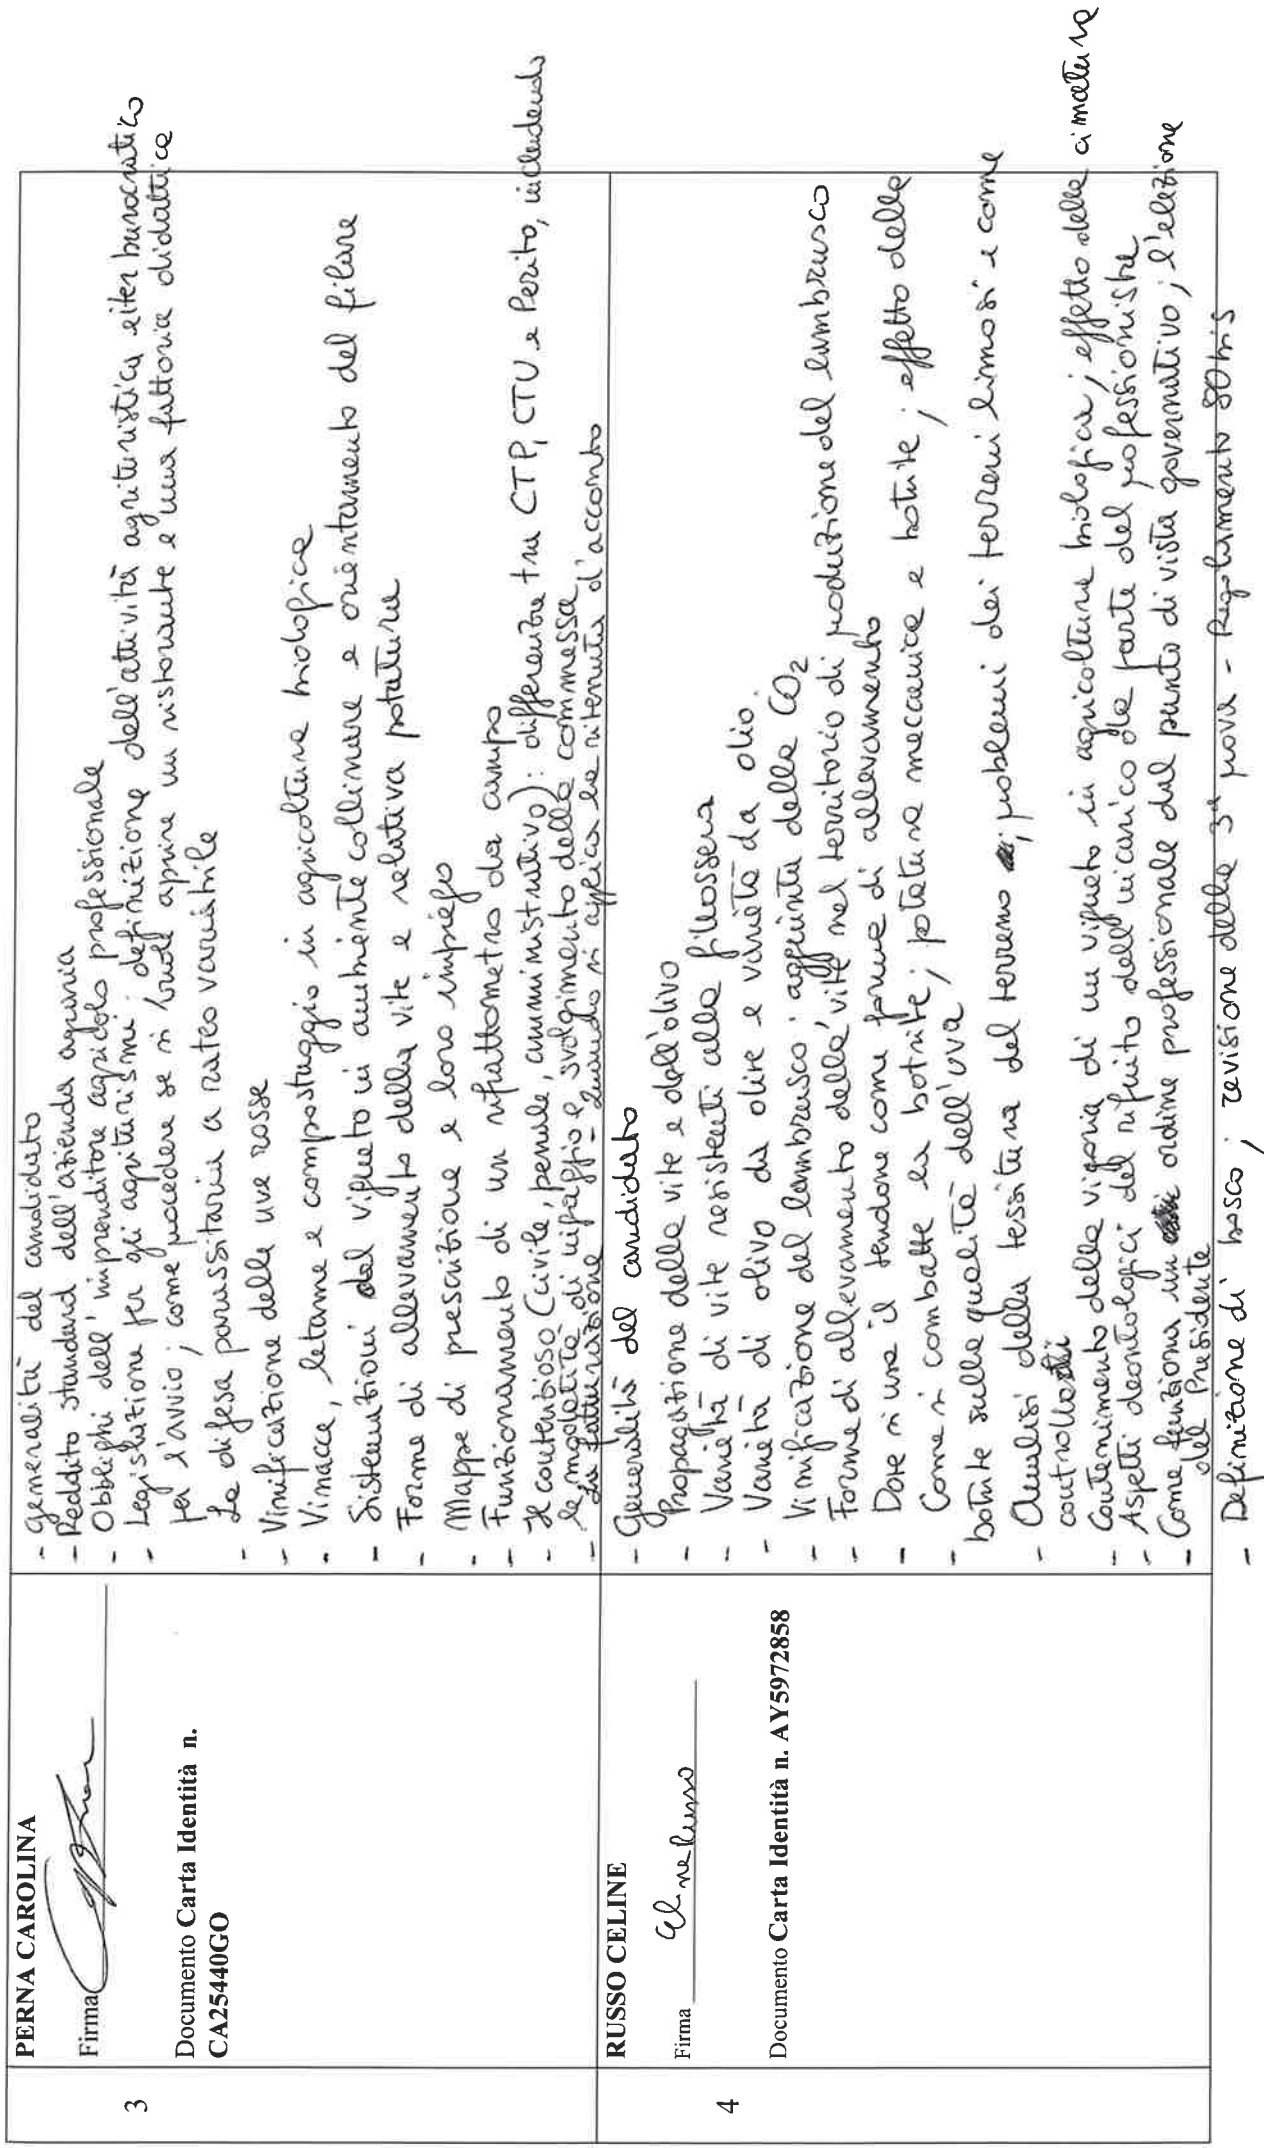 3
PERNA CAROLINA
Firma
Documento Carta Identità n.
CA25440GO
- Generalità del candidato
- Reddito standard dell'azienda agraria
- Obblighi dell'imprenditore agricolo professionale
- Legislazione per gli agriturismi: definizione dell'attività agrituristica e iter burocratico
per l'avvio; come procedere se si vuole aprire un ristorante e una fattoria didattica
- La difesa parassitaria a rateo variabile
- Vinificazione delle uve rosse
- Vinacce, letame e compostaggio in agricoltura biologica
- Sistemazioni del vigneto in ambiente collinare e orientamento del filare
- Forme di allevamento della vite e relativa potatura
- Mappe di prescrizione e loro impiego
- Funzionamento di un rifrattometro da campo
- Il contenzioso (civile, penale, amministrativo): differenza tra CTP, CTU e Perito, includendo
le modalità di ingaggio e svolgimento della commessa
- La fatturazione - quando si applica la ritenuta d'acconto
4
RUSSO CELINE
Firma
Documento Carta Identità n. AY5972858
- Generalità del candidato
- Propagazione della vite e dell'olivo
- Varietà di vite resistenti alla fillossera
- Varietà di olivo da olive e varietà da olio.
- Vinificazione del lambrusco: aggiunta della CO2
- Forme di allevamento della vite nel territorio di produzione del lambrusco
- Dove si usa il tendone come forme di allevamento
- Come si combatte la botrite; potatura meccanica e botrite; effetto della
botrite sulla qualità dell'uva
- Analisi della tessitura del terreno; problemi dei terreni limosi e come
controllarli
- Contenimento della vigoria di un vigneto in agricoltura biologica; effetto della cimatura
- Aspetti deontologici del rifiuto dell'incarico da parte del professionista
- Come funziona un ordine professionale dal punto di vista governativo; l'elezione
del Presidente
- Definizione di bosco; revisione della 3a prova - Regolamento 80 bis